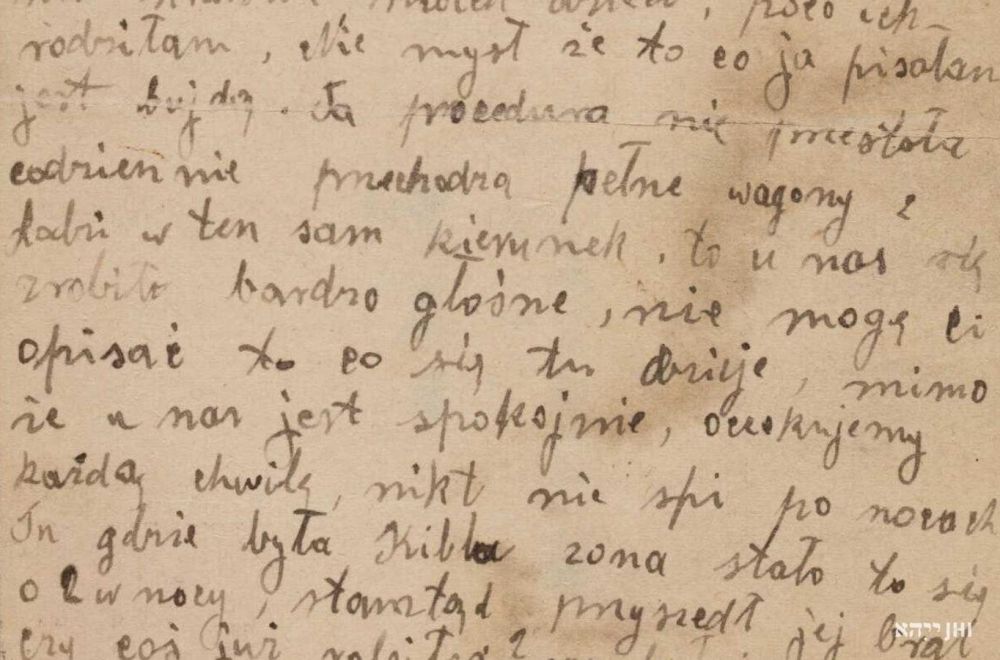 rodziłam, Nie myśl że to co ja pisałam
jest bujdą. Ta procedura nie przestała
codziennie przechodzą pełne wagony z
ludzi w ten sam kierunek, to u nas się
zrobiło bardzo głośne, nie mogę ci
opisać to co się tu dzieje, mimo
że u nas jest spokojnie, oczekujemy
każdą chwilę, nikt nie spi po nocach
Tu gdzie była żona stało to się
o 2 w nocy, stamtąd przyszedł jej brat
czy coś już